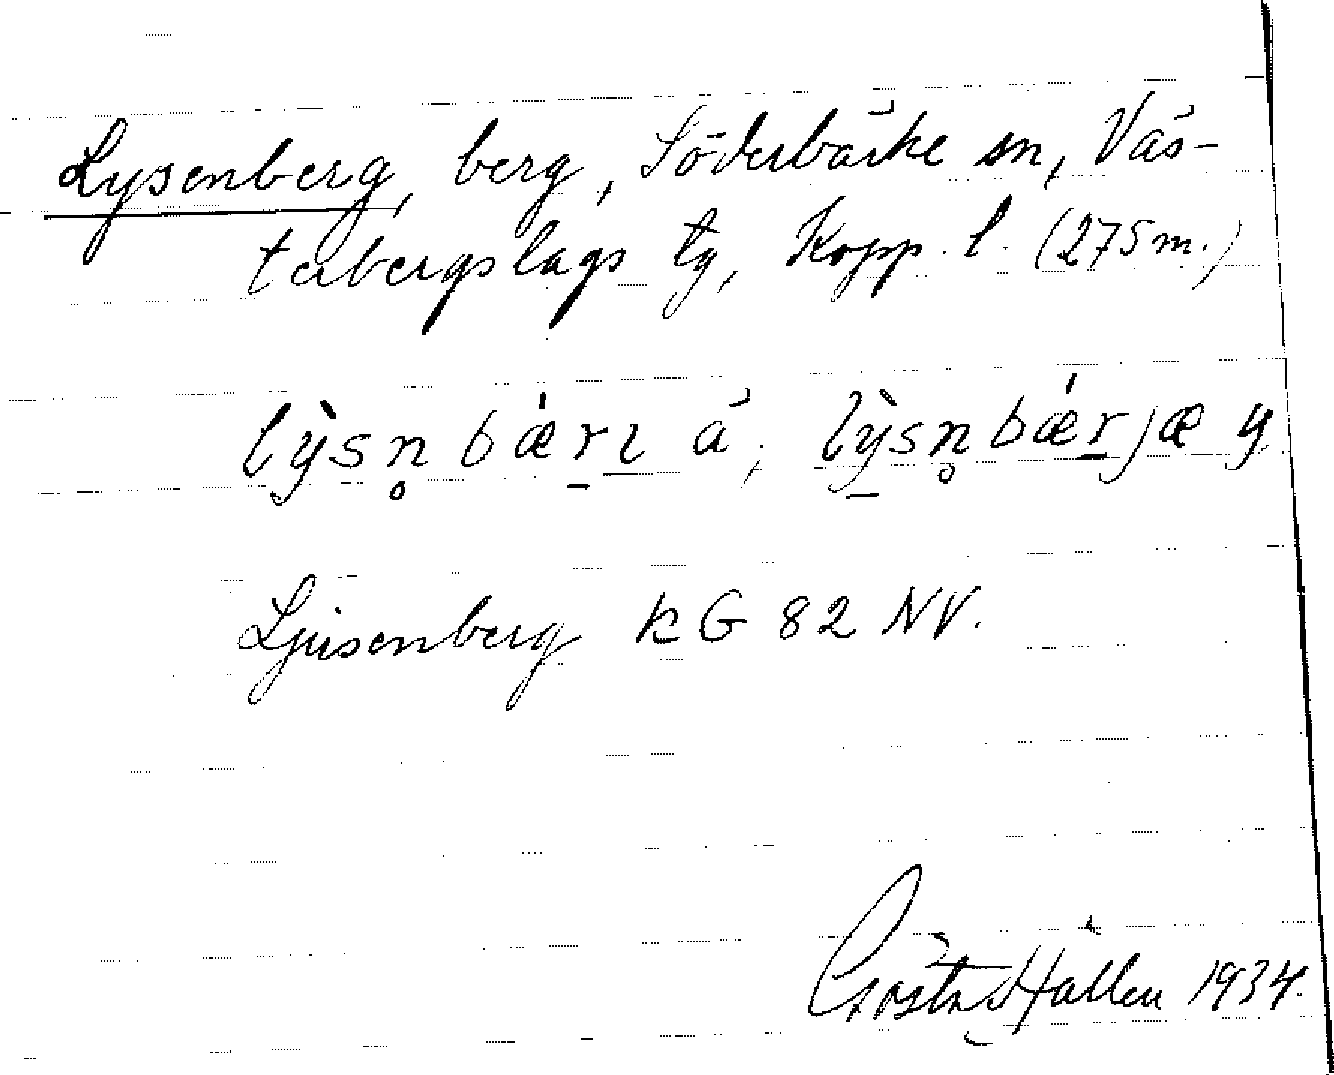 Lysenberg, berg, Söderbärke sn, Väs-
terbergslags tg, Kopp. l. (275 m.)
lỳsn̥bǽrɩ ä, lỳsn̥bǽrjæ y.
Ljusenberg KG 82 NV.
Gösta Hallén 1934.